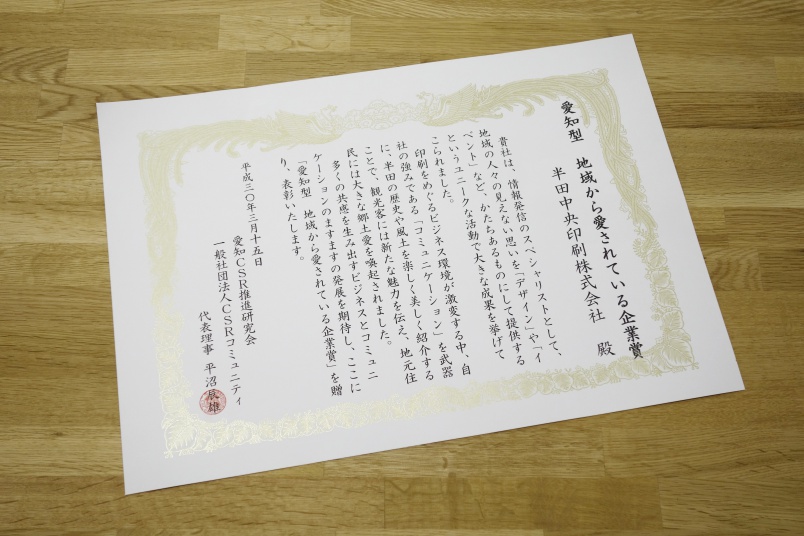 愛知型 地域から愛されている企業賞
半田中央印刷株式会社 殿
貴社は、情報発信のスペシャリストとして、
地域の人々の見えない思いを「デザイン」や「イ
ベント」など、かたちあるものにして提供する
というユニークな活動で大きな成果を挙げて
こられました。
印刷をめぐるビジネス環境が激変する中、自
社の強みである「コミュニケーション」を武器
に、半田の歴史や風土を楽しく美しく紹介する
ことで、観光客には新たな魅力を伝え、地元住
民には大きな郷土愛を喚起されました。
多くの共感を生み出すビジネスとコミュニ
ケーションのますますの発展を期待し、ここに
「愛知型 地域から愛されている企業賞」を贈
り、表彰いたします。
平成三〇年三月十五日
愛知CSR推進研究会
一般社団法人CSRコミュニティ
代表理事 平沼辰雄